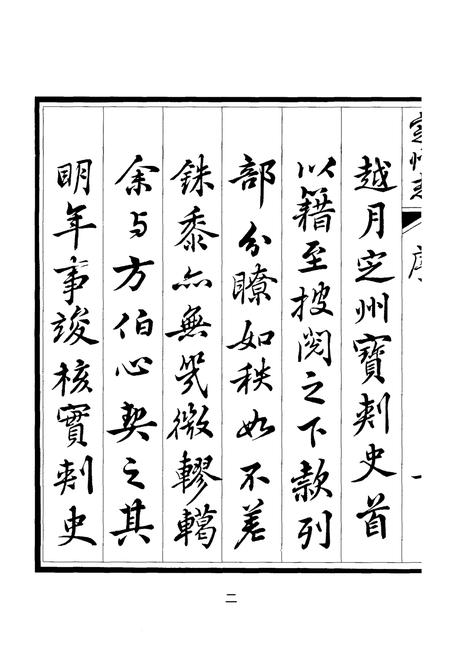 定州志 序 一
越月定州寶刺史首
以籍至披閱之下款列
部分瞭如秩如不差
銖黍亦無幾微轇轕
余与方伯心契之其
明年事竣核實刺史
二